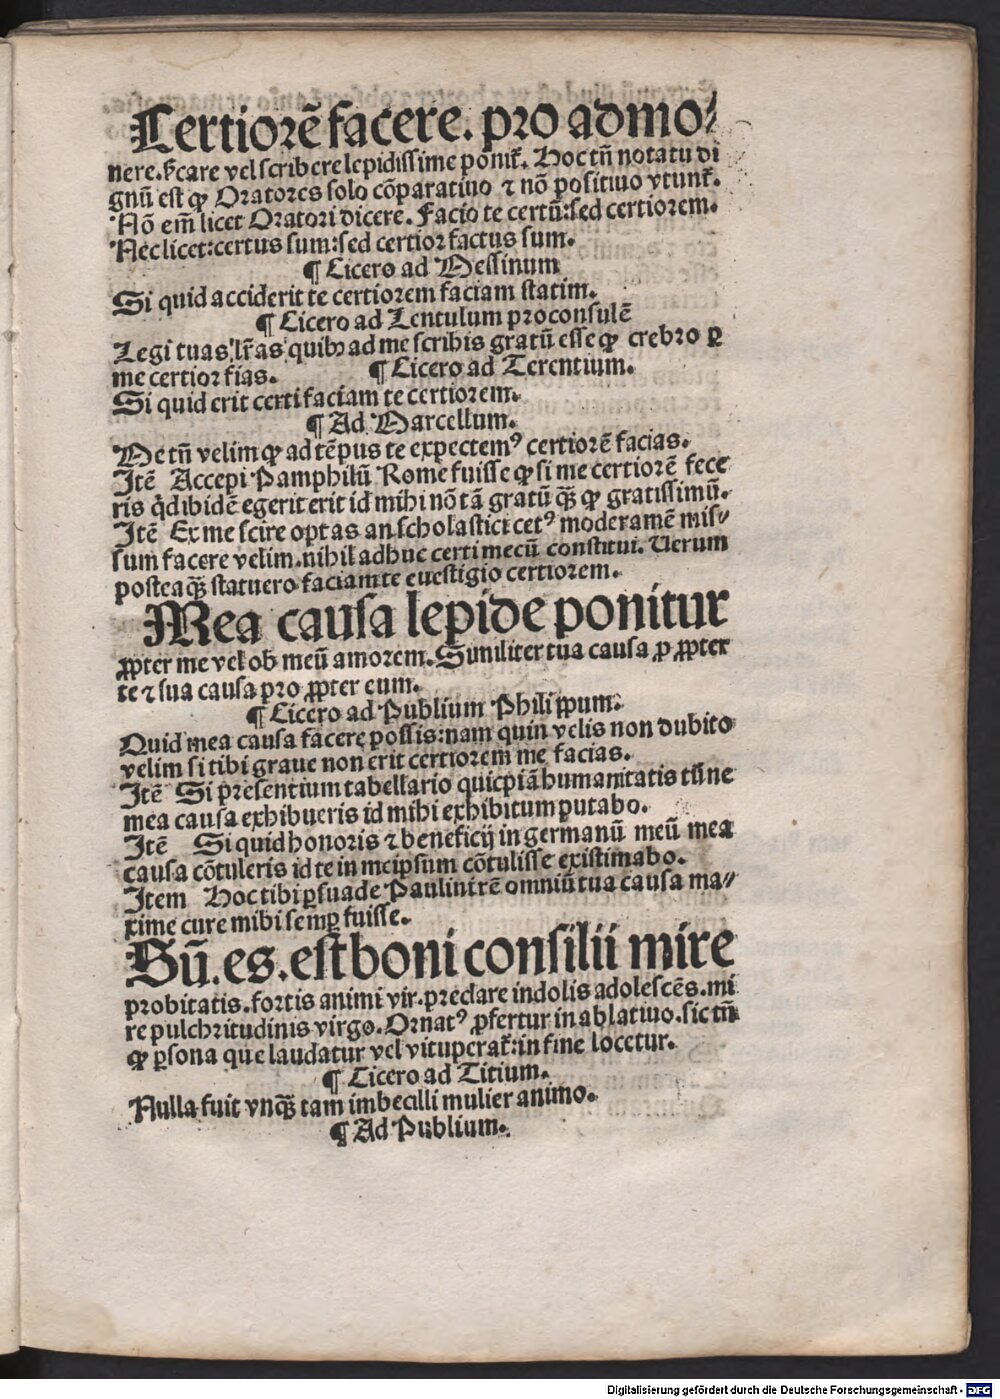 Certiorē facere. pro admo⸗
nere. ꝟcare vel scribere lepidissime ponit᷑. Hoc tn̄ notatu di
gnū est ꝙ Oratores solo cōparatiuo ⁊ nō positiuo vtunt᷑.
Nō em̄ licet Oratori dicere. Facio te certū: sed certiorem.
Nec licet: certus sum: sed certior factus sum.
¶ Cicero ad Messinum
Si quid acciderit te certiorem faciam statim.
¶ Cicero ad Lentulum proconsulē
Legi tuas lr̄as quibꝫ ad me scribis gratū esse ꝙ crebro ꝑ
me certior fias. ¶ Cicero ad Terentium.
Si quid erit certi faciam te certiorem.
¶ Ad Marcellum.
Me tn̄ velim ꝙ ad tēpus te expectemꝰ certiorē facias.
Itē Accepi Pamphilū Rome fuisse ꝙ si me certiorē fece
ris qd̄ ibidē egerit erit id mihi nō tā gratū qꝫ̄ ꝙ gratissimū.
Itē Ex me scire optas an scholastici cetꝰ moderamē mis⸗
sum facere velim. nihil adhuc certi mecū constitui. Uerum
posteaqꝫ̄ statuero faciam te euestigio certiorem.
Mea causa lepide ponitur
ꝓpter me vel ob meū amorem. Similiter tua causa ꝓ ꝓpter
te ⁊ sua causa pro ꝓpter eum.
¶ Cicero ad Publium Philippum.
Quid mea causa facere possis: nam quin velis non dubito
velim si tibi graue non erit certiorem me facias.
Itē Si presentium tabellario quicpiā humanitatis tūne
mea causa exhibueris id mihi exhibitum putabo.
Itē Si quid honoris ⁊ beneficij in germanū meū mea
causa cōtuleris id te in meipsum cōtulisse existimabo.
Item Hoc tibi ꝑsuade Paulini rē omniū tua causa ma⸗
xime cure mihi semꝑ fuisse.
Sū. es. est boni consilii mire
probitatis. fortis animi vir. preclare indolis adolescēs. mi
re pulchritudinis virgo. Ornatꝰ ꝓfertur in ablatiuo. sic tn̄
ꝙ ꝑsona que laudatur vel vituperat᷑: in fine locetur.
¶ Cicero ad Titium.
Nulla fuit vnqꝫ̄ tam imbecilli mulier animo.
¶ Ad Publium.
Digitalisierung gefördert durch die Deutsche Forschungsgemeinschaft - DFG